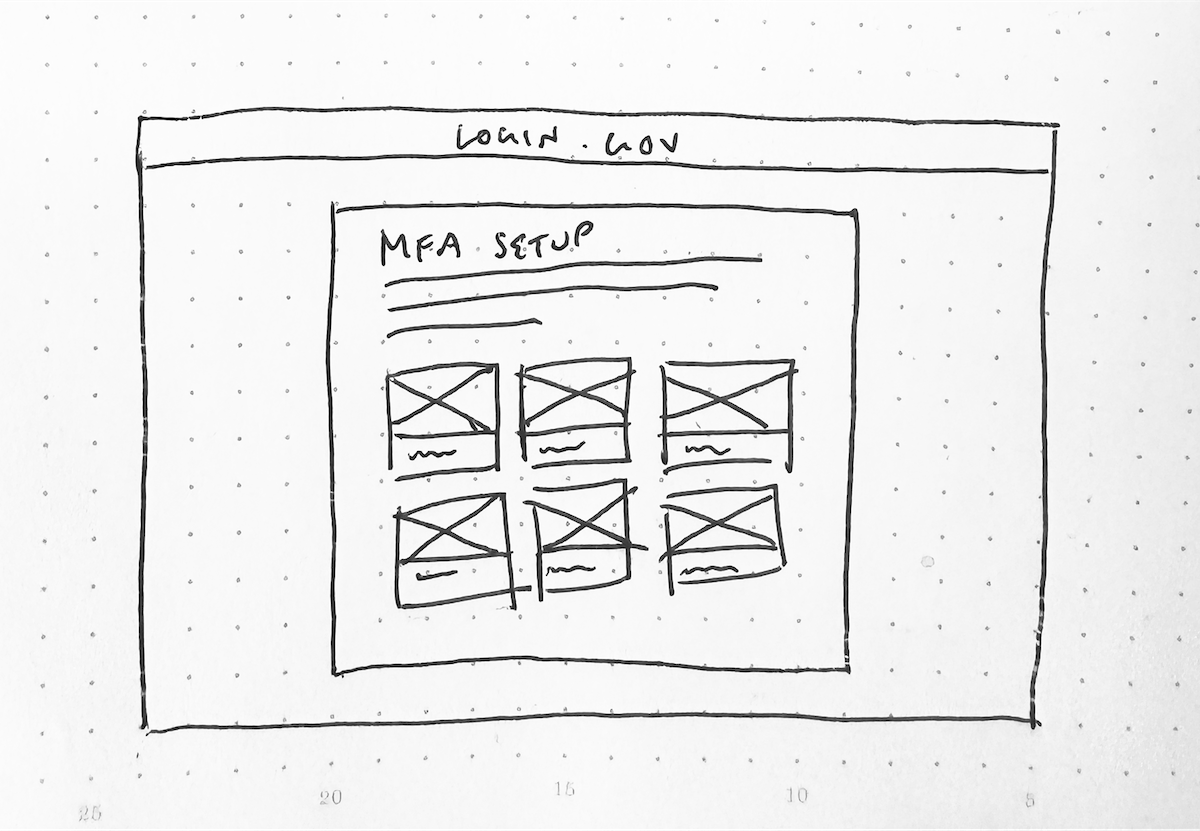 LOGIN.GOV
MFA SETUP
25 20 15 10 5